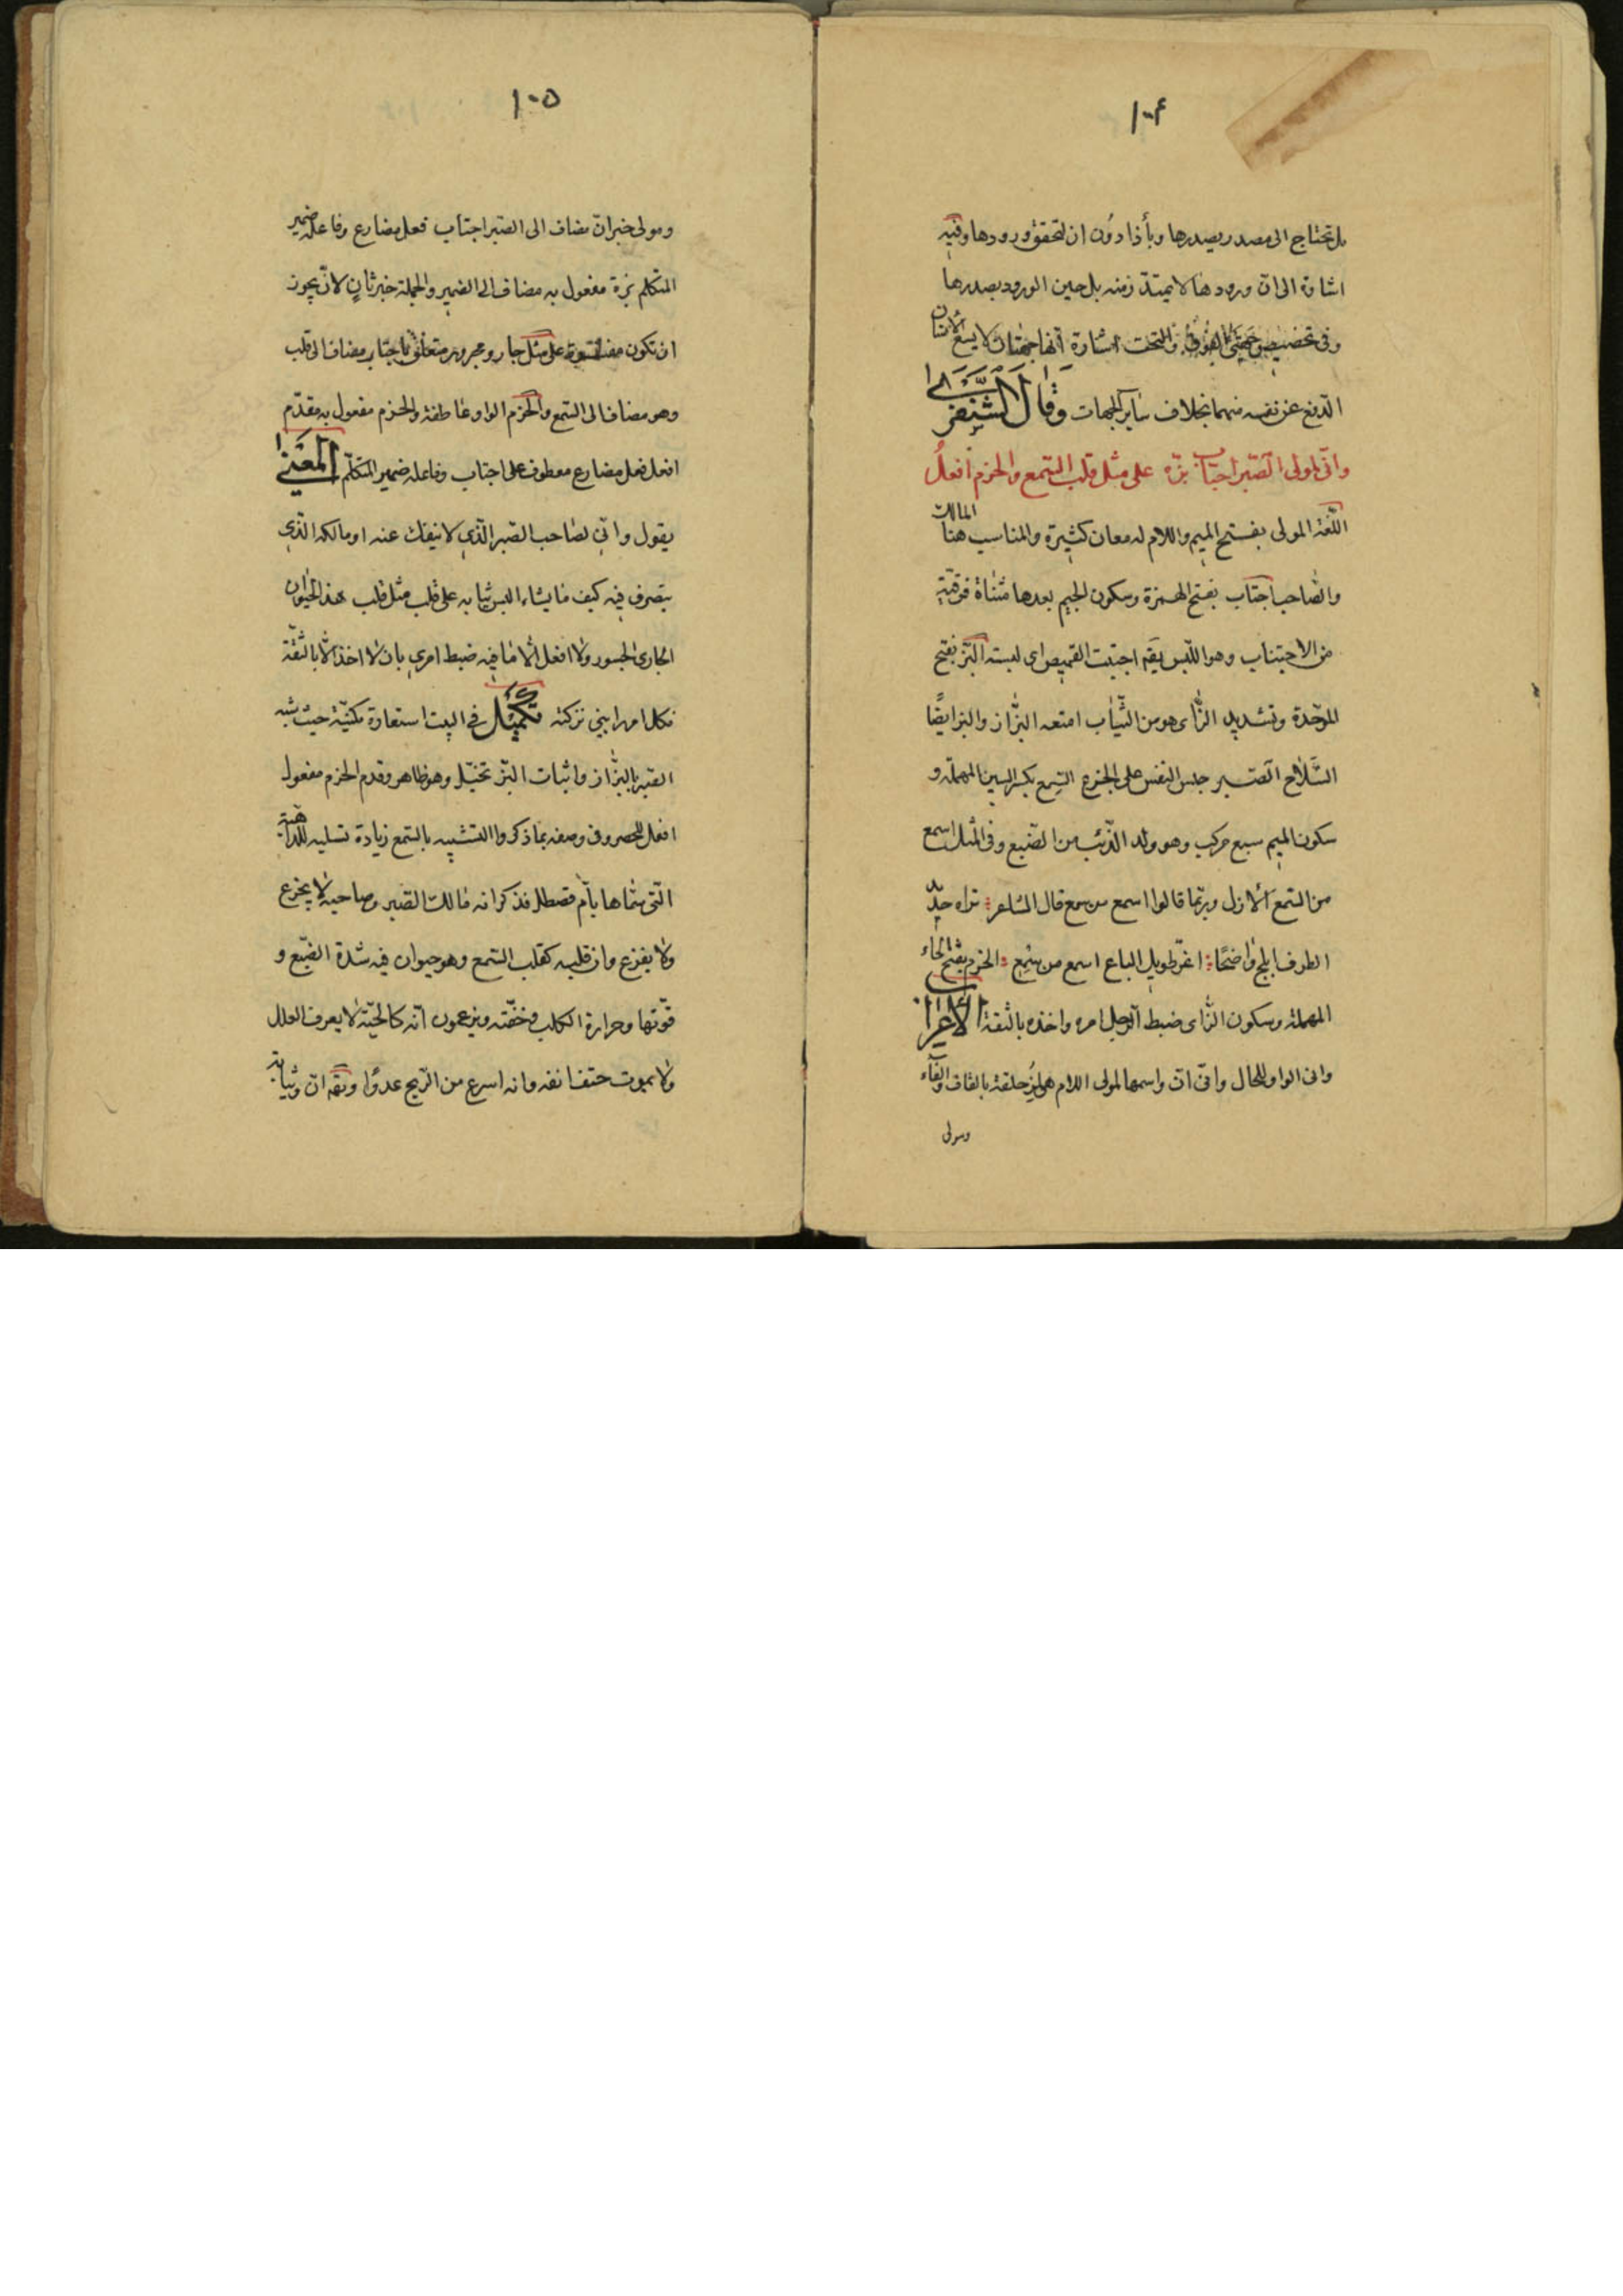 ١٠٤
بل تحتاج الى مصدر يصدرها وبأذا دون ان لتحقق ورودها وفيه
اشارة الى ان ورودها لا يمتدّ زمنه بل حين الورود يصدرها
وفى تخصيص جهتى الفوق والتحت اشارة انها جهتان لا يسع الانسان
الدفع عن نفسه منهما بخلاف ساير الجهات وَقَالَ الشَّنْفَرَى
وانّى لمولى الصّبر اجتاب بزّه على مثل قلب السّمع والحزم افعلُ
اللّغة المولى بفتح الميم واللام له معان كثيرة والمناسب هنا المالك
والصّاحب اجتاب بفتح الهمزة وسكون الجيم بعدها مثناة فوقيّة
من الاجتياب وهو اللّبس يقم اجتبت القميص اى لبسته البزّ بفتح
الموحّدة وتشديد الزّاى هو من الثّياب امتعه البزّاز والبز ايضًا
السّلاح الصّبر حبس النفس على الجزع السّمع بكسر السين المهملة و
سكون الميم سبع مركب وهو ولد الذّئب من الضّبع وفى المثل اسمع
من السّمع الازل وربّما قالوا اسمع من سمع قال الشاعر تراه حديد
الطرف ابلج واضحًا اغرّ طويل الباع اسمع من سِمِع الحزم بفتح الحاء
المهملة وسكون الزّاى ضبط الرّجل امره واخذه بالثقة الاعراب
وانى الواو للحال وانّى انّ واسمها لمولى اللام هى المزحلقة بالقاف والفاء
ومولى
١٠٥
ومولى خبر انّ مضاف الى الصّبر اجتاب فعل مضارع وفاعله ضمير
المتكلم بزّه مفعول به مضاف الى الضمير والجملة خبر ثانٍ لانّ يجوز
ان تكون على مثل جار ومجرور متعلق باجتاب مضاف الى قلب
وهو مضاف الى السّمع والحَزم الواو عاطفة والحزم مفعول به مقدّم
افعل فعل مضارع معطوف على اجتاب وفاعله ضمير المتكلّم المَعْنَى
يقول وانّى لصاحب الصّبر الّذي لا ينفك عنه او مالكه الّذي
يتصرف فيه كيف ما يشاء البس ثيابه على قلب مثل قلب هذا الحيوان
الجارى الجسور ولا افعل الّا ما فيه ضبط امري بان لا اخذ الّا بالثّقة
فكل امر رابني تركته تكميل في البيت استعارة مكنيّة حيث شبه
الصّبر بالبزّاز واثبات البزّ تخييل وهو ظاهر وقدم الحزم مفعول
افعل للحصر وفى وصفه بما ذكر والتشبيه بالسّمع زيادة تسليه للدّاهية
الّتى سمّاها بأم قصطل فذكر انه مالك الصّبر وصاحبه لا يجزع
ولا يفزع وان قلبه كقلب السّمع وهو حيوان فيه شدة الضّبع و
قوّتها وحرارة الكلب وخفّته ويزعمون انّه كالحيّة لا يعرف العلل
ولا يموت حتف انفه وانه اسرع من الرّيح عدوًا ويقم ان وثباته